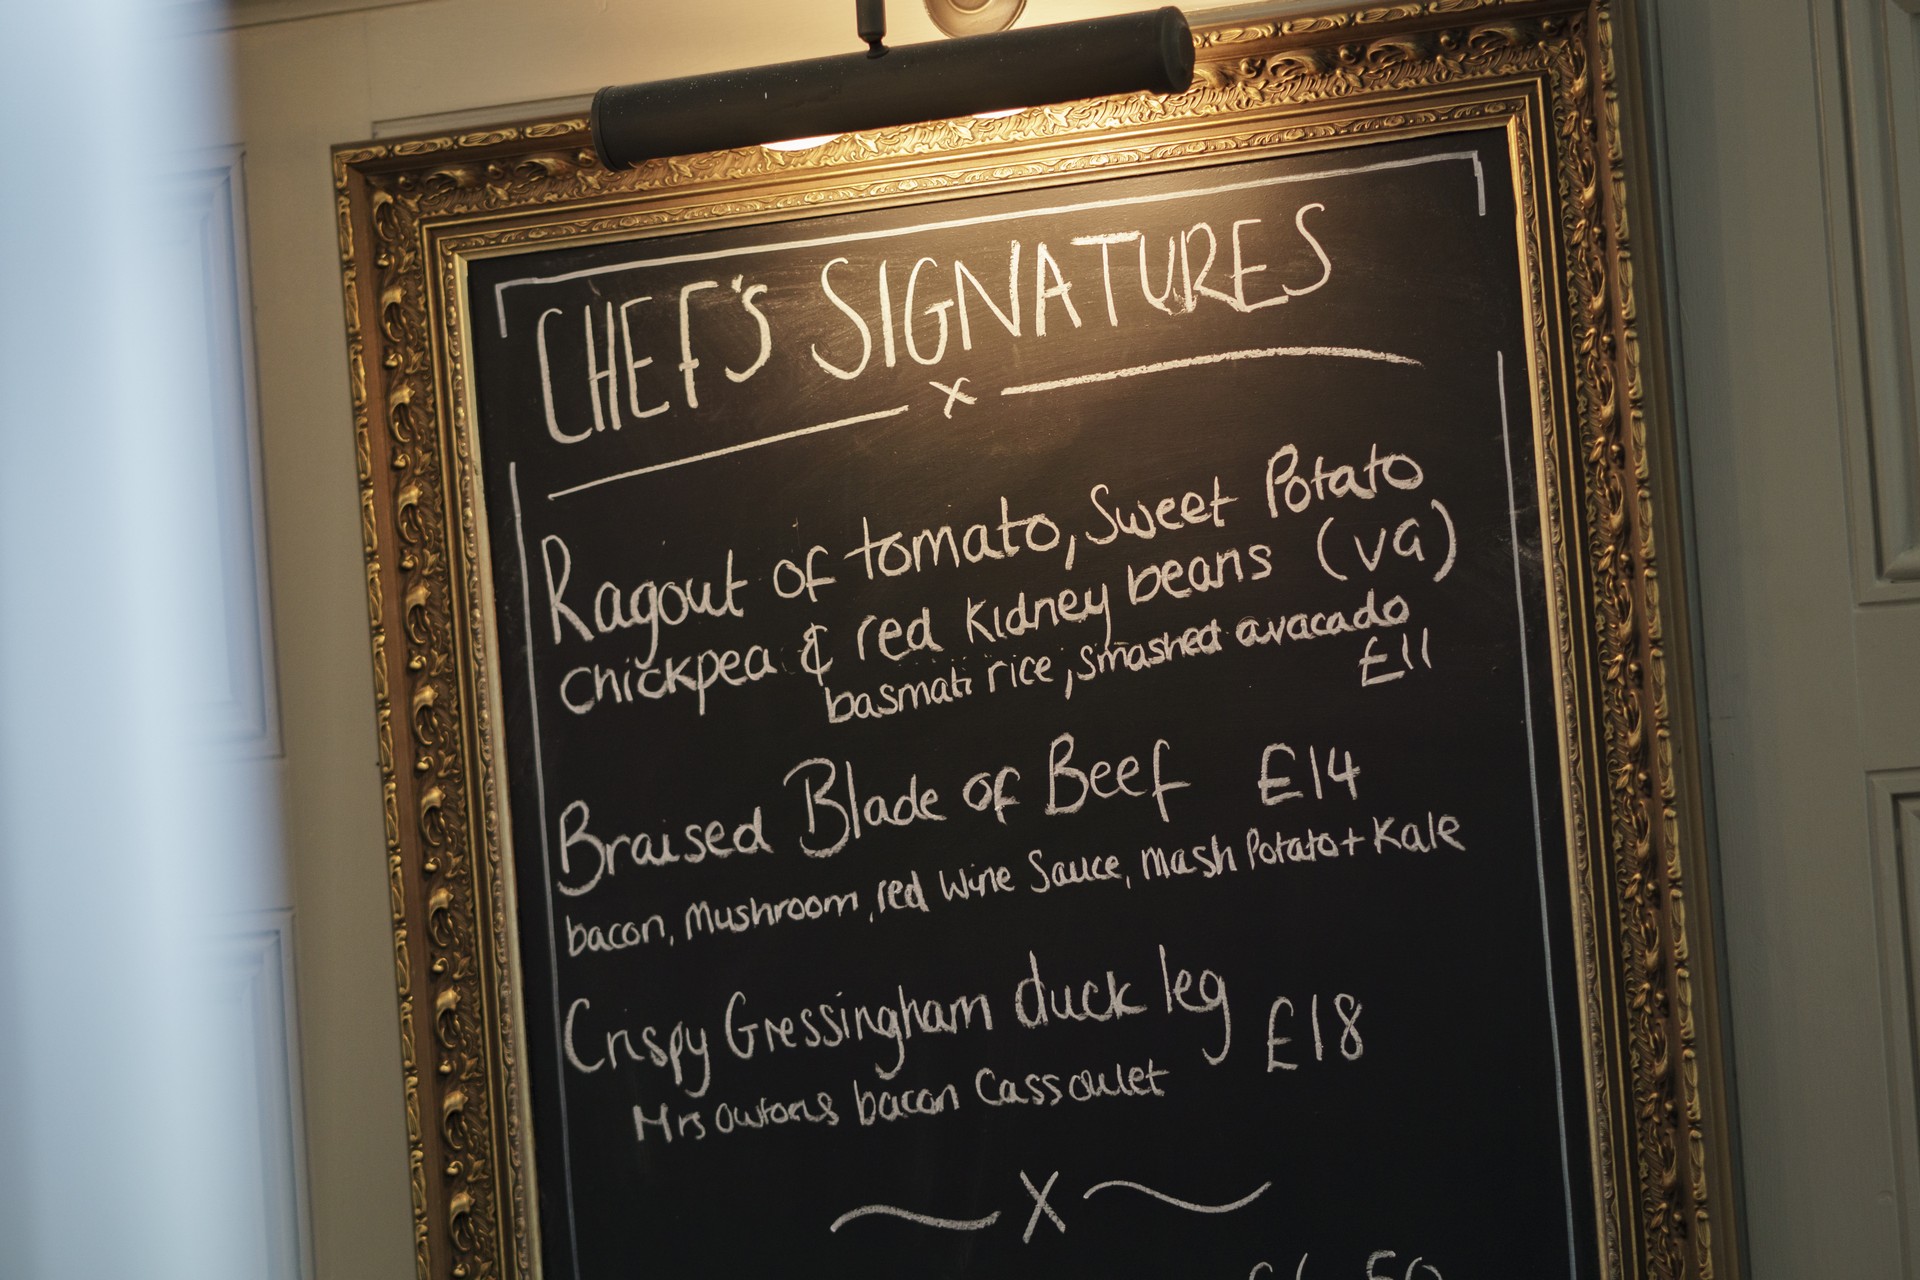 CHEF'S SIGNATURES
x
Ragout of tomato, Sweet Potato
chickpea & red kidney beans (VG)
basmati rice, smashed avacado
£11
Braised Blade of Beef £14
bacon, Mushroom, red Wine Sauce, Mash Potato + Kale
Crispy Gressingham duck leg £18
Mrs Owtons bacon Cassoulet
X